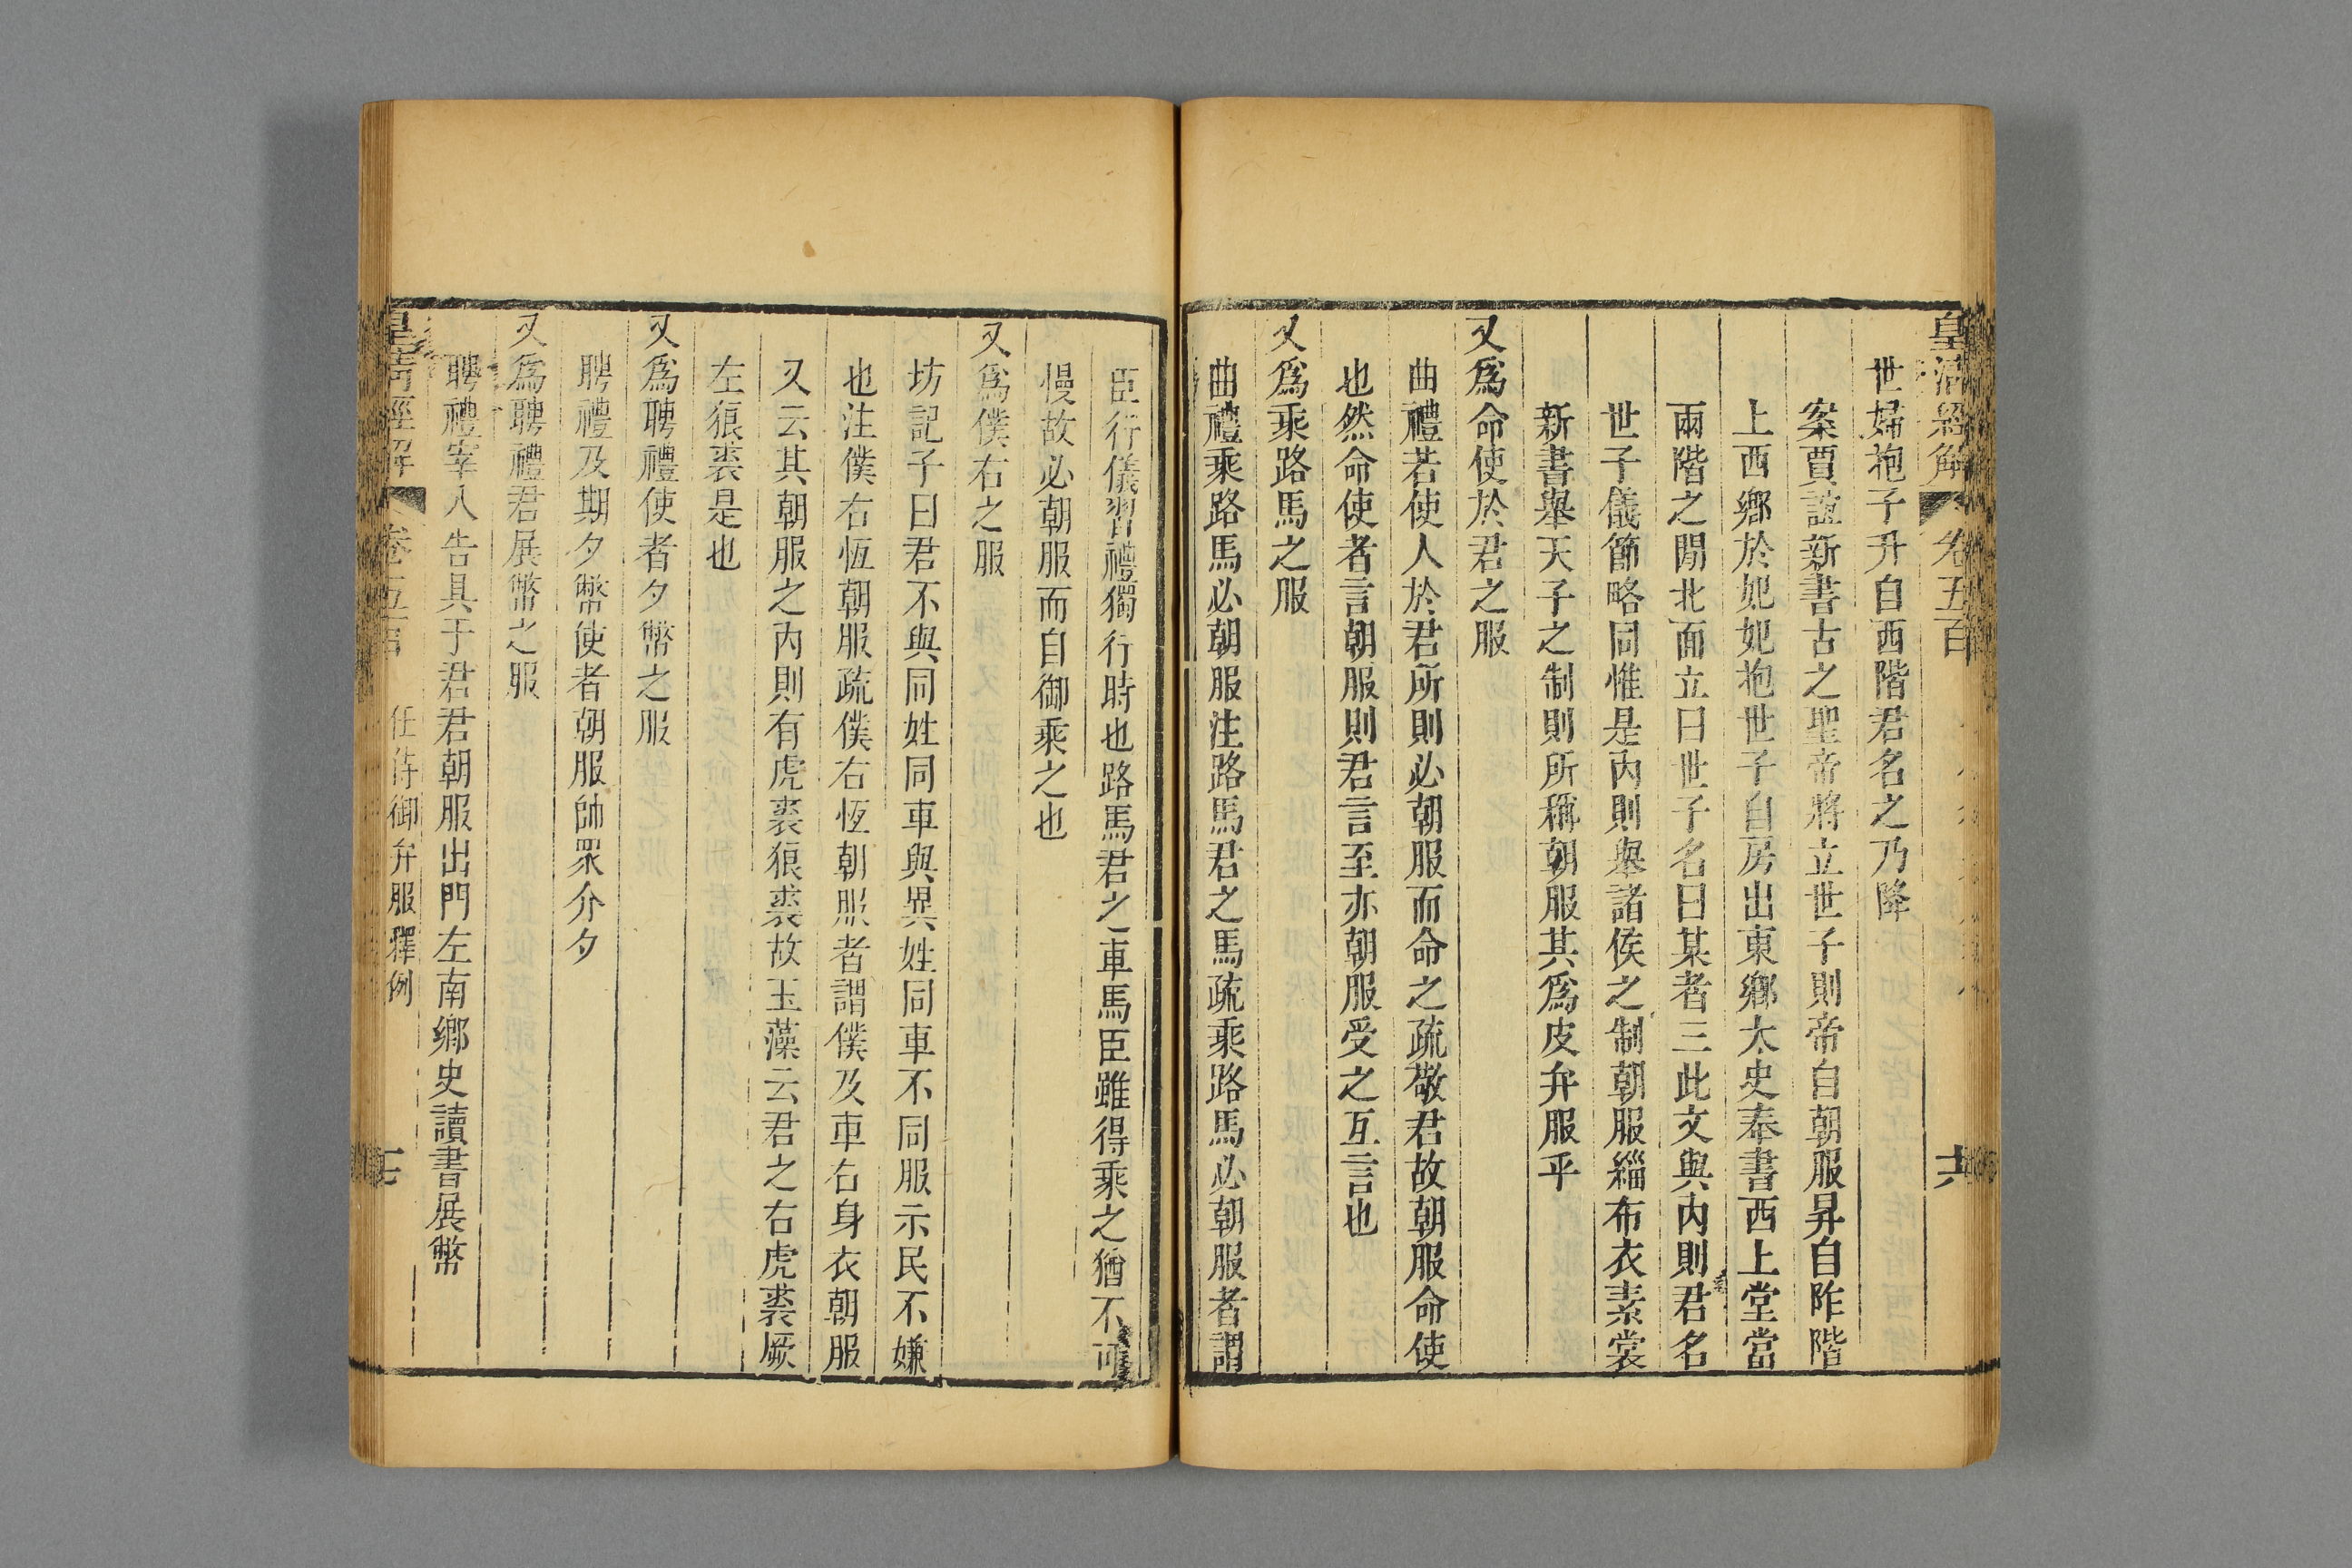 皇清經解 卷五百 六
世婦抱子升自西階君名之乃降
案賈誼新書古之聖帝將立世子則帝自朝服昇自阼階
上西鄉於妃妃抱世子自房出東鄉太史奉書西上堂當
兩階之閒北面立曰世子名曰某者三此文與內則君名
世子儀節略同惟是內則舉諸侯之制朝服緇布衣素裳
新書舉天子之制則所稱朝服其爲皮弁服乎
又爲命使於君之服
曲禮若使人於君所則必朝服而命之疏敬君故朝服命使
也然命使者言朝服則君言至亦朝服受之互言也
又爲乘路馬之服
曲禮乘路馬必朝服注路馬君之馬疏乘路馬必朝服者謂
臣行儀習禮獨行時也路馬君之車馬臣雖得乘之猶不可
慢故必朝服而自御乘之也
又爲僕右之服
坊記子曰君不與同姓同車與異姓同車不同服示民不嫌
也注僕右恆朝服疏僕右恆朝服者謂僕及車右身衣朝服
又云其朝服之內則有虎裘狼裘故玉藻云君之右虎裘厥
左狼裘是也
又爲聘禮使者夕幣之服
聘禮及期夕幣使者朝服帥眾介夕
又爲聘禮君展幣之服
聘禮宰入告具于君君朝服出門左南鄉史讀書展幣
皇清經解 卷五百 任侍御弁服釋例 七